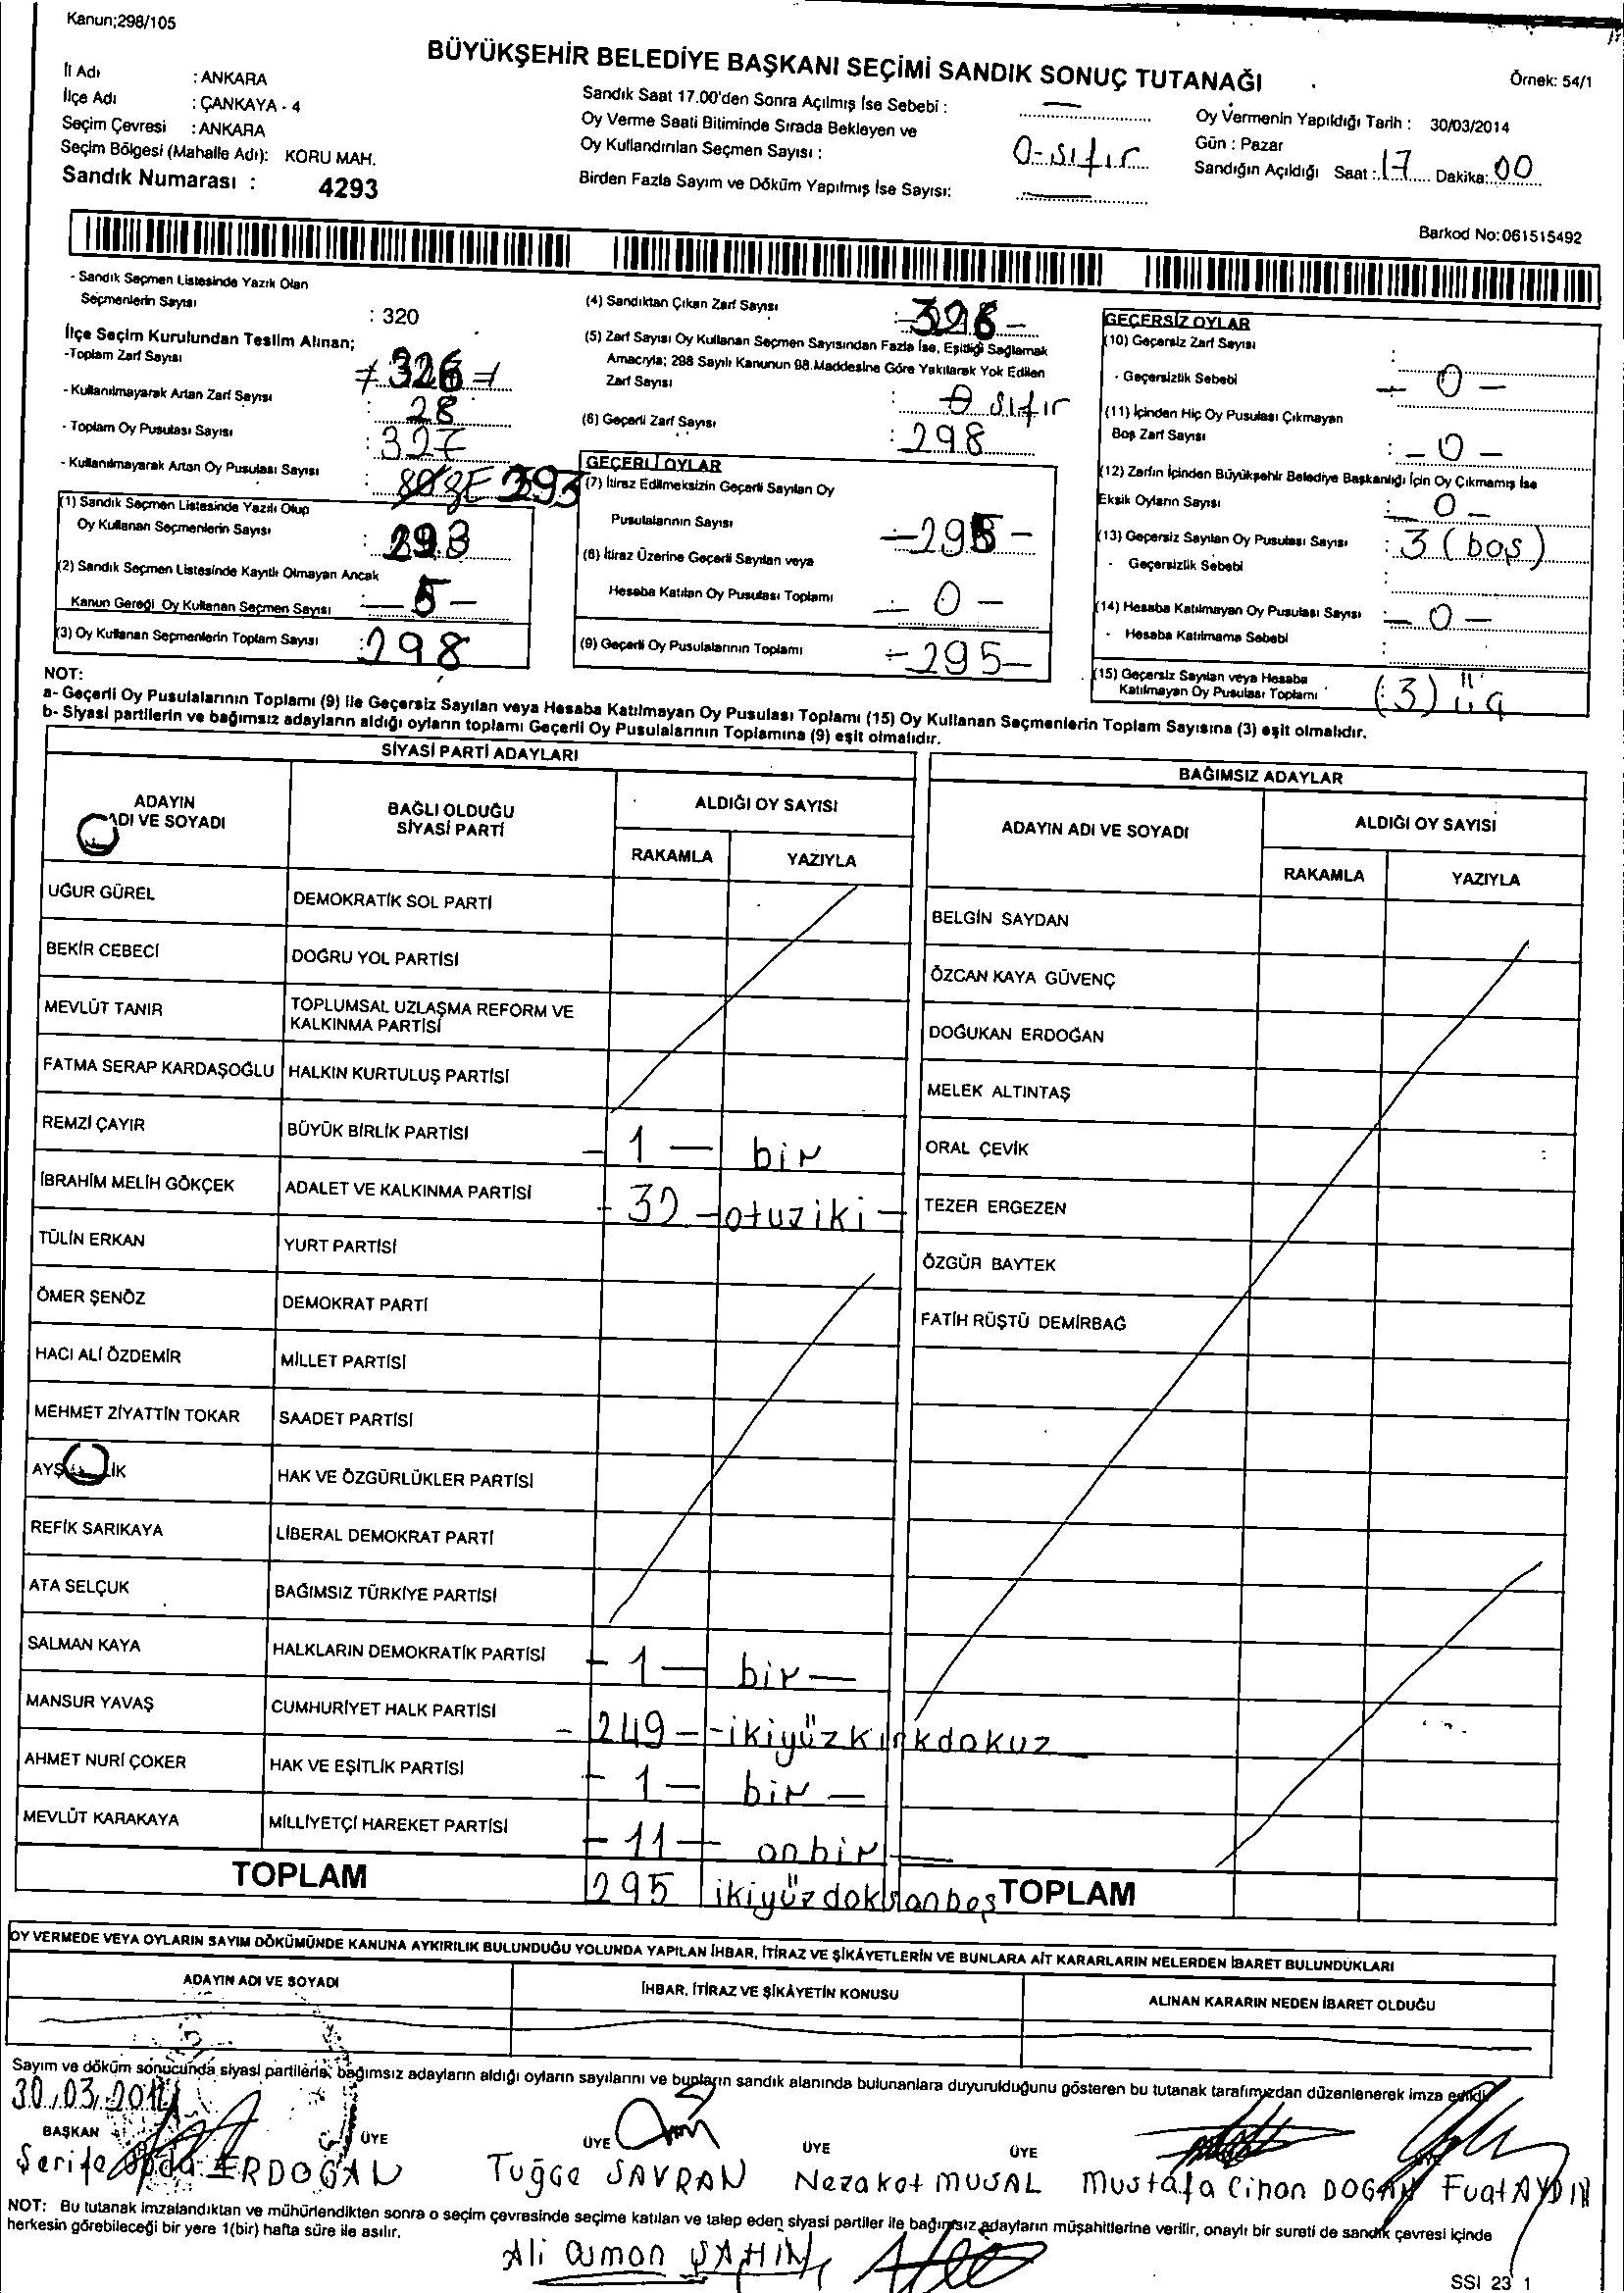 Kanun;298/105
BÜYÜKŞEHİR BELEDİYE BAŞKANI SEÇİMİ SANDIK SONUÇ TUTANAĞI
Örnek: 54/1
İl Adı : ANKARA
İlçe Adı : ÇANKAYA - 4
Seçim Çevresi : ANKARA
Seçim Bölgesi (Mahalle Adı): KORU MAH.
Sandık Numarası : 4293
Sandık Saat 17.00'den Sonra Açılmış İse Sebebi : —
Oy Verme Saati Bitiminde Sırada Bekleyen ve
Oy Kullandırılan Seçmen Sayısı : 0-sıfır
Birden Fazla Sayım ve Döküm Yapılmış İse Sayısı: —
Oy Vermenin Yapıldığı Tarih : 30/03/2014
Gün : Pazar
Sandığın Açıldığı Saat : 17 Dakika: 00
Barkod No:061515492
- Sandık Seçmen Listesinde Yazılı Olan
Seçmenlerin Sayısı : 320
İlçe Seçim Kurulundan Teslim Alınan;
-Toplam Zarf Sayısı 326
- Kullanılmayarak Artan Zarf Sayısı : 28
- Toplam Oy Pusulası Sayısı : 327
- Kullanılmayarak Artan Oy Pusulası Sayısı :
(1) Sandık Seçmen Listesinde Yazılı Olup
Oy Kullanan Seçmenlerin Sayısı : 293
(2) Sandık Seçmen Listesinde Kayıtlı Olmayan Ancak
Kanun Gereği Oy Kullanan Seçmen Sayısı : — 5 -
(3) Oy Kullanan Seçmenlerin Toplam Sayısı : 298
(4) Sandıktan Çıkan Zarf Sayısı : -298-
(5) Zarf Sayısı Oy Kullanan Seçmen Sayısından Fazla İse, Eşitliği Sağlamak
Amacıyla; 298 Sayılı Kanunun 98.Maddesine Göre Yakılarak Yok Edilen
Zarf Sayısı : 0 sıfır
(6) Geçerli Zarf Sayısı : 298
GEÇERLİ OYLAR
(7) İtiraz Edilmeksizin Geçerli Sayılan Oy
Pusulalarının Sayısı —295-
(8) İtiraz Üzerine Geçerli Sayılan veya
Hesaba Katılan Oy Pusulası Toplamı — 0 -
(9) Geçerli Oy Pusulalarının Toplamı : -295-
GEÇERSİZ OYLAR
(10) Geçersiz Zarf Sayısı :
- Geçersizlik Sebebi — 0 -
(11) İçinden Hiç Oy Pusulası Çıkmayan
Boş Zarf Sayısı : - 0 -
(12) Zarfın İçinden Büyükşehir Belediye Başkanlığı İçin Oy Çıkmamış İse
Eksik Oyların Sayısı : - 0 -
(13) Geçersiz Sayılan Oy Pusulası Sayısı : 3 (boş)
- Geçersizlik Sebebi :
(14) Hesaba Katılmayan Oy Pusulası Sayısı : — 0 -
- Hesaba Katılmama Sebebi :
(15) Geçersiz Sayılan veya Hesaba
Katılmayan Oy Pusulası Toplamı : (3) üç
NOT:
a- Geçerli Oy Pusulalarının Toplamı (9) ile Geçersiz Sayılan veya Hesaba Katılmayan Oy Pusulası Toplamı (15) Oy Kullanan Seçmenlerin Toplam Sayısına (3) eşit olmalıdır.
b- Siyasi partilerin ve bağımsız adayların aldığı oyların toplamı Geçerli Oy Pusulalarının Toplamına (9) eşit olmalıdır.
SİYASİ PARTİ ADAYLARI
ADAYIN ADI VE SOYADI BAĞLI OLDUĞU SİYASİ PARTİ ALDIĞI OY SAYISI
RAKAMLA YAZIYLA
UĞUR GÜREL DEMOKRATİK SOL PARTİ
BEKİR CEBECİ DOĞRU YOL PARTİSİ
MEVLÜT TANIR TOPLUMSAL UZLAŞMA REFORM VE
KALKINMA PARTİSİ
FATMA SERAP KARDAŞOĞLU HALKIN KURTULUŞ PARTİSİ
REMZİ ÇAYIR BÜYÜK BİRLİK PARTİSİ - 1 — bir
İBRAHİM MELİH GÖKÇEK ADALET VE KALKINMA PARTİSİ - 32 - otuziki -
TÜLİN ERKAN YURT PARTİSİ
ÖMER ŞENÖZ DEMOKRAT PARTİ
HACI ALİ ÖZDEMİR MİLLET PARTİSİ
MEHMET ZİYATTİN TOKAR SAADET PARTİSİ
HAK VE ÖZGÜRLÜKLER PARTİSİ
REFİK SARIKAYA LİBERAL DEMOKRAT PARTİ
ATA SELÇUK BAĞIMSIZ TÜRKİYE PARTİSİ
SALMAN KAYA HALKLARIN DEMOKRATİK PARTİSİ - 1 — bir —
MANSUR YAVAŞ CUMHURİYET HALK PARTİSİ - 249 - -ikiyüzkırkdokuz
AHMET NURİ ÇOKER HAK VE EŞİTLİK PARTİSİ - 1 — bir —
MEVLÜT KARAKAYA MİLLİYETÇİ HAREKET PARTİSİ - 11 — onbir —
TOPLAM 295 ikiyüzdoksanbeş
BAĞIMSIZ ADAYLAR
ADAYIN ADI VE SOYADI ALDIĞI OY SAYISI
RAKAMLA YAZIYLA
BELGİN SAYDAN
ÖZCAN KAYA GÜVENÇ
DOĞUKAN ERDOĞAN
MELEK ALTINTAŞ
ORAL ÇEVİK
TEZER ERGEZEN
ÖZGÜR BAYTEK
FATİH RÜŞTÜ DEMİRBAĞ
TOPLAM
OY VERMEDE VEYA OYLARIN SAYIM DÖKÜMÜNDE KANUNA AYKIRILIK BULUNDUĞU YOLUNDA YAPILAN İHBAR, İTİRAZ VE ŞİKÂYETLERİN VE BUNLARA AİT KARARLARIN NELERDEN İBARET BULUNDUKLARI
ADAYIN ADI VE SOYADI İHBAR, İTİRAZ VE ŞİKÂYETİN KONUSU ALINAN KARARIN NEDEN İBARET OLDUĞU
Sayım ve döküm sonucunda siyasi partilerin, bağımsız adayların aldığı oyların sayılarını ve bunların sandık alanında bulunanlara duyurulduğunu gösteren bu tutanak tarafımızdan düzenlenerek imza edildi.
30.03.2014
BAŞKAN ÜYE ÜYE ÜYE ÜYE
Şerife ERDOĞAN Tuğçe SAVRAN Nezaket MUSAL Mustafa Cihan DOĞAN Fuat AYDIN
NOT: Bu tutanak imzalandıktan ve mühürlendikten sonra o seçim çevresinde seçime katılan ve talep eden siyasi partiler ile bağımsız adayların müşahitlerine verilir, onaylı bir sureti de sandık çevresi içinde
herkesin görebileceği bir yere 1(bir) hafta süre ile asılır.
Ali Osman ŞAHİN
SSI 23 1